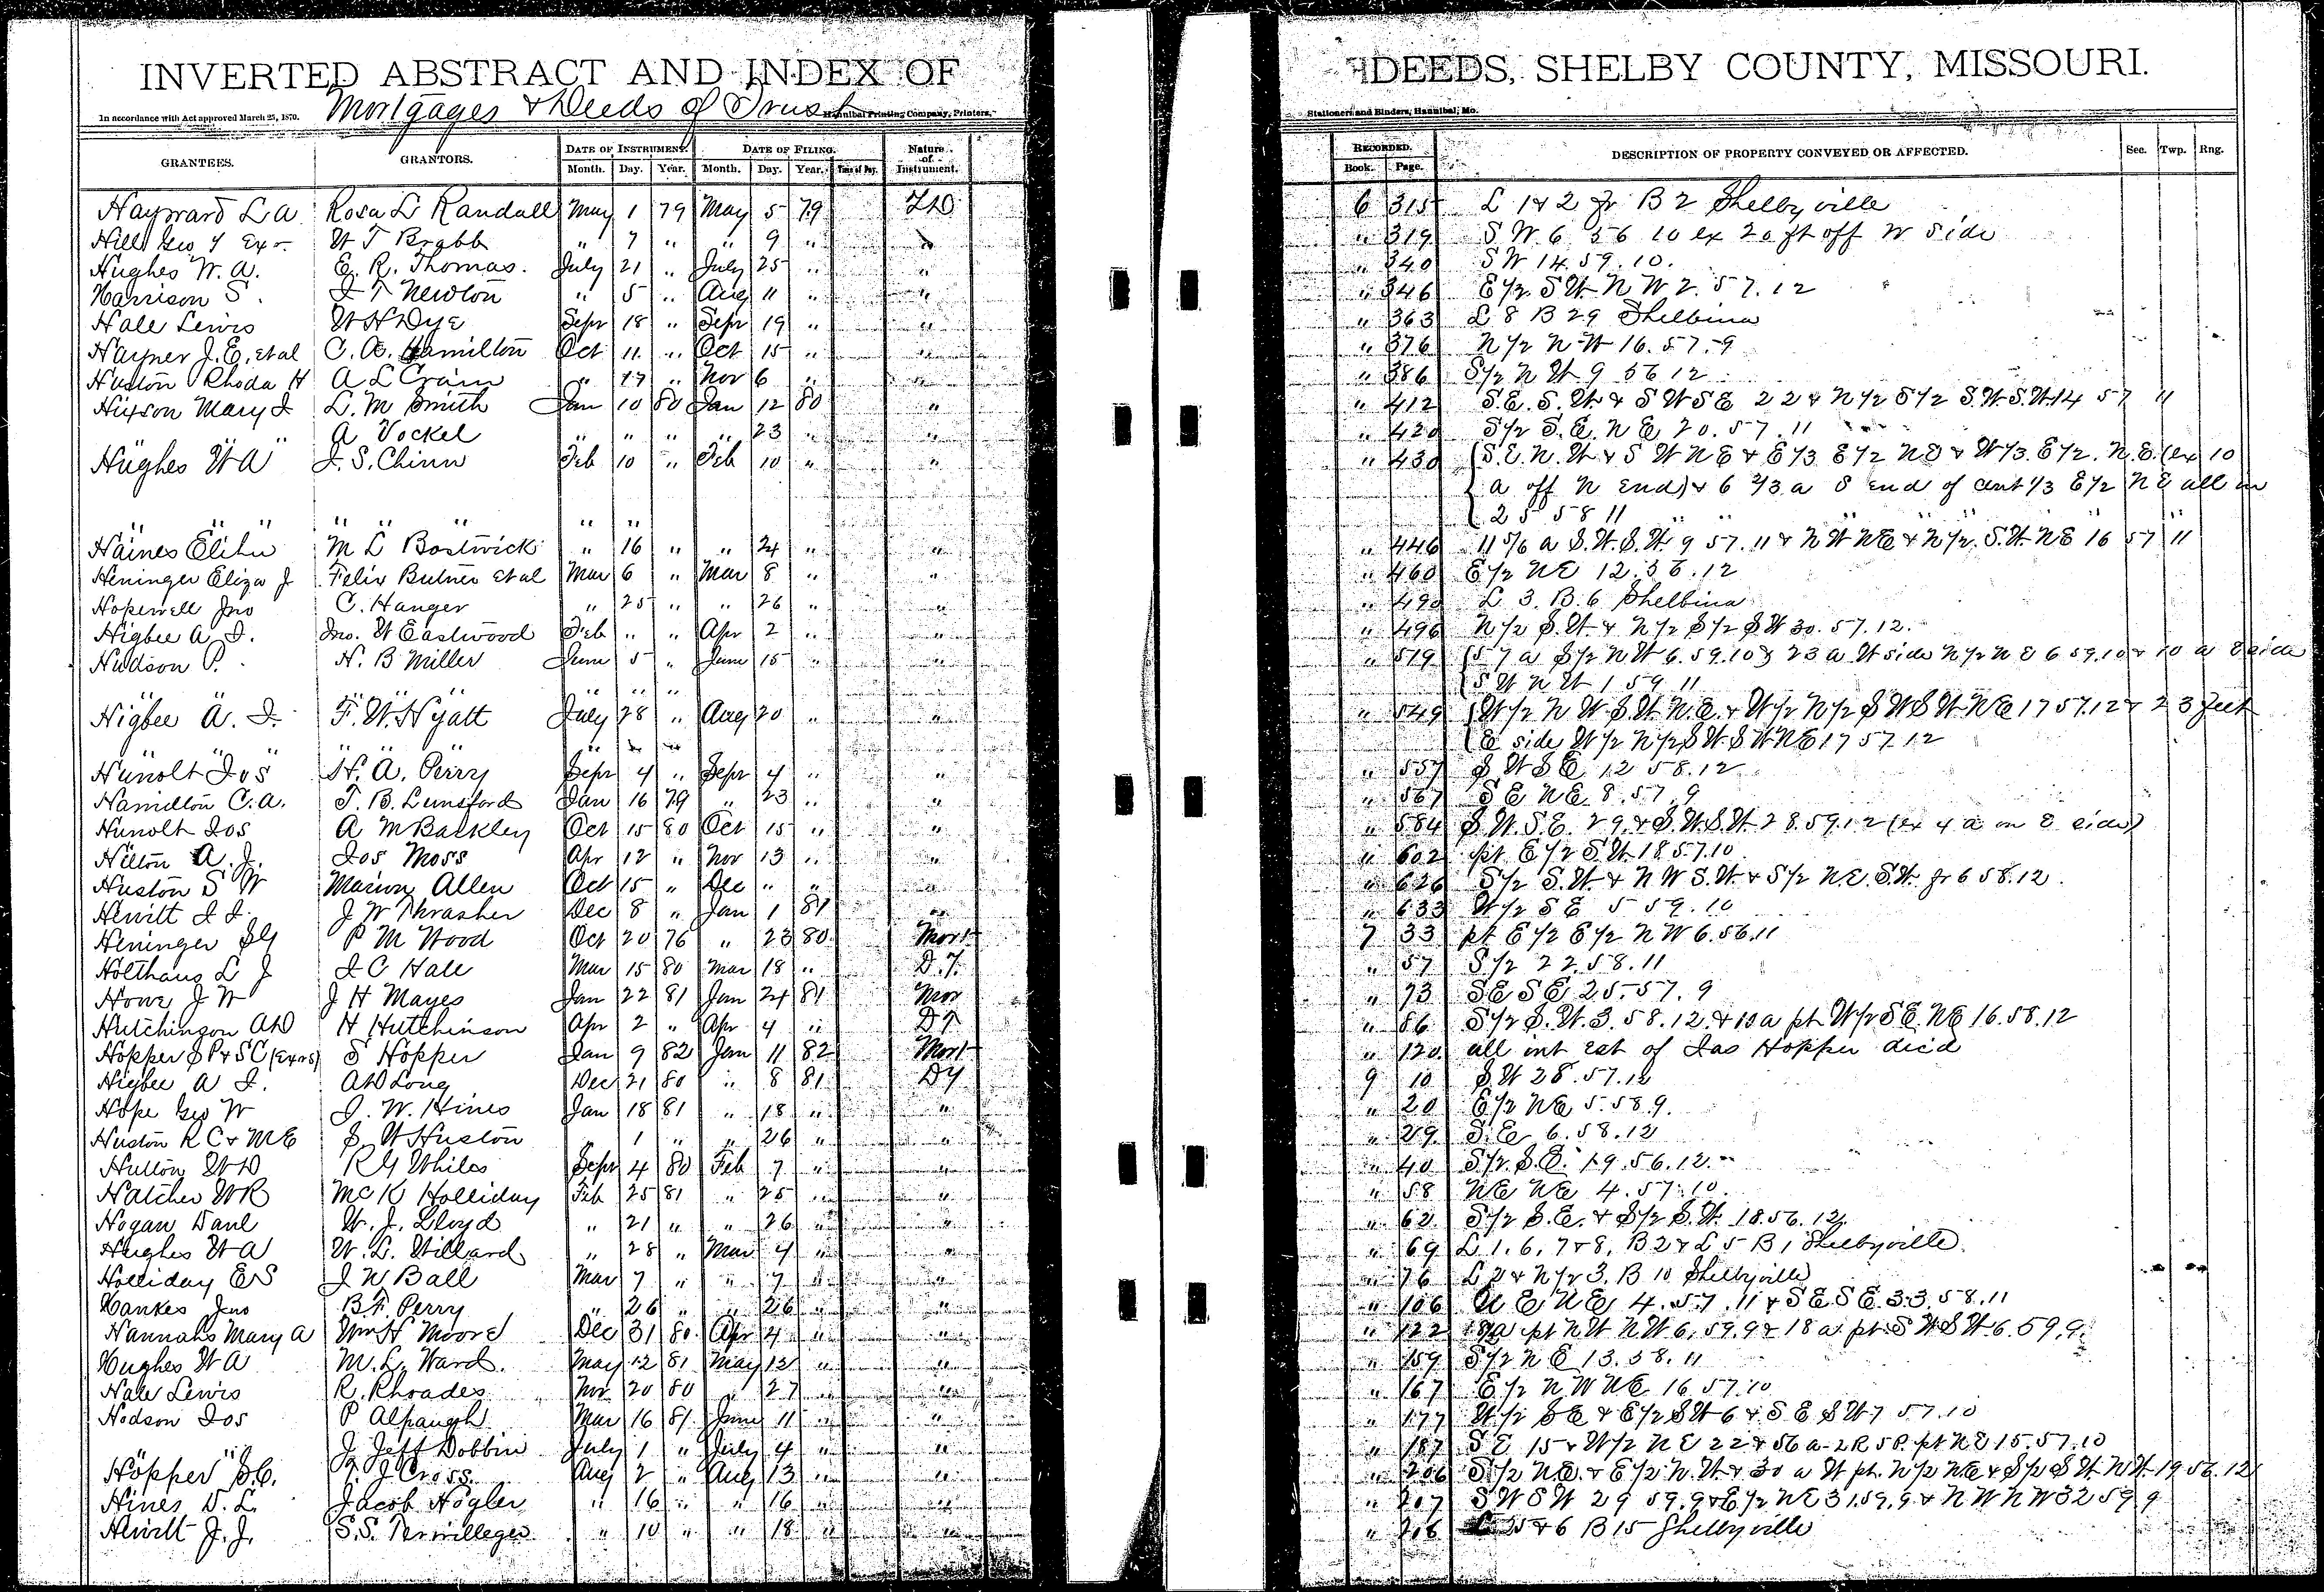 INVERTED ABSTRACT AND INDEX OF DEEDS, SHELBY COUNTY, MISSOURI.
Mortgages & Deeds of Trust
In accordance with Act approved March 25, 1870. Hannibal Printing Company, Printers, Stationers and Binders, Hannibal, Mo.
GRANTEES. GRANTORS. DATE OF INSTRUMENT. DATE OF FILING. Nature of Instrument. RECORDED. DESCRIPTION OF PROPERTY CONVEYED OR AFFECTED. Sec. Twp. Rng.
Month. Day. Year. Month. Day. Year. Time of Day. Book. Page.
Hayward L A Rosa L Randall May 1 79 May 5 79 6 315 L 1 & 2 fr B 2 Shellbyville
Hill Geo Y Exr W T Brabb " 7 " " 9 " " 319 S W 6 56 10 ex 20 ft off W side
Hughes W. A. E. R. Thomas. July 21 " July 25 " " " 340 S W 14. 59. 10.
Harrison S. J T Newton " 5 " Aug 11 " " " 346 E 1/2 S W N W 2. 57. 12
Hale Lewis W H Dye Sepr 18 " Sepr 19 " " " 363 L 8 B 29 Shelbina
Hayner J. E. et al C. A. Hamilton Oct 11 " Oct 15 " " " 376 N 1/2 N W 16. 57. 9
Huston Rhoda H A L Crain " 17 " Nov 6 " " " 386 S 1/2 N W 9 56 12
Hixson Mary J L. M Smith Jan 10 80 Jan 12 80 " " 412 S. E. S. W. & S W S E 22 & N 1/2 S 1/2 S. W. S. W. 14 57 11
" " " A Vockel " " " " 23 " " 420 S 1/2 S. E. N E 20. 57. 11
Hughes W A J. S. Chinn Feb 10 " Feb 10 " " " 430 (S. E. N. W. & S W N E & E 1/3 E 1/2 N E & W 1/3 E 1/2 N. E. (ex 10
a off N end) & 6 2/3 a S end of cent 1/3 E 1/2 N E all in
" " " " " " 25 58 11
Haines Elihu M L Bostwick " 16 " " 24 " " " 446 11 5/6 a S. W. S. W. 9 57. 11 & N W N E & N 1/2 S. W. N E 16 57 11
Heninger Eliza J Felix Butner et al Mar 6 " Mar 8 " " " 460 E 1/2 N E 12. 56. 12
Hopewell Jno C. Hanger " 25 " " 26 " " " 490 L 3. B. 6 Shelbina
Higbee A. J. Jno. W Eastwood Feb " " Apr 2 " " " 496 N 1/2 S. W. & N 1/2 S 1/2 S W 30. 57. 12.
Hudson P. H. B Miller June 5 " June 15 " " " 519 (57 a S 1/2 N W 6. 59. 10 & 23 a W side N 1/2 N E 6 59. 10 & 10 a E side
" " " " " " S W N W 1 59 11
Higbee A. J. F. W. Hyatt July 28 " Aug 20 " " " 549 (W 1/2 N W S. W. N. E. & W 1/2 N 1/2 S W S W N E 17 57. 12 & 23 feet
" " " " " " E side W 1/2 N 1/2 S W S W N E 17 57. 12
Hunolt Jos H. A. Perry Sepr 4 " Sepr 4 " " " 557 S W S E 12 58. 12
Hamilton C. A. T. B. Lunsford Jan 16 79 " 23 " " " 567 S E N E 8. 57. 9
Hunolt Jos A M Backley Oct 15 80 Oct 15 " " " 584 S. W. S. E. 29. & S. W. S. W. 28. 59. 12 (ex 4 a on E side)
Hilton A. J. Jos Moss Apr 12 " Nov 13 " " " 602 pt E 1/2 S W 18 57. 10
Huston S W Marion Allen Oct 15 " Dec " " " " 626 S 1/2 S. W. & N W S. W. & S 1/2 N. E. S. W. fr 6 58. 12.
Hewitt J J. J W Thrasher Dec 8 " Jan 1 81 " " 633 W 1/2 S E 5 59. 10
Heninger P M Wood Oct 20 76 " 23 80 Mort 7 33 pt E 1/2 E 1/2 N W 6. 56. 11
Holthaus L J J C Hale Mar 15 80 Mar 18 " D. T. " 57 S 1/2 22. 58. 11
Howe J W J H Mayes Jan 22 81 Jan 24 81 Mor " 73 S E S E 25. 57. 9
Hutchinson A D H Hutchinson Apr 2 " Apr 4 " D T " 86 S 1/2 S. W. 3. 58. 12. & 10 a pt W 1/2 S E. N E 16. 58. 12
Hopper S P & S C (Exrs) S Hopper Jan 9 82 Jan 11 82 Mort " 120 all int est of Jas Hopper decd
Higbee A J. A D Long Dec 21 80 " 8 81 D T 9 10 S. W 28. 57. 12
Hope Geo W J. W. Hines Jan 18 81 " 18 " " " 20 E 1/2 N E 5. 58 9.
Huston R C & M E S. W Huston " 1 " " 26 " " " 29 S. E 6. 58. 12
Hutton W D R G Whiles Sepr 4 80 Feb 7 " " " 40 S 1/2 S. E. 19. 56. 12.
Hatcher W R Mc K Holliday Feb 25 81 " 25 " " " 58 N E N E 4. 57. 10.
Hogan Danl W. J. Lloyd " 21 " " 26 " " " 62 S 1/2 S. E. & S 1/2 S. W. 18. 56. 12.
Hughes W A W. L. Willard " 28 " Mar 4 " " " 69 L 1. 6. 7 & 8, B 2 & L 5 B 1 Shelbyville.
Holliday E S J W Ball Mar 7 " " 7 " " " 76 L 2 & N 1/2 3. B 10 Shelbyville
Hankes Jno B F. Perry " 26 " " 26 " " " 106 N E N E 4. 57. 11 & S E S E. 33. 58. 11
Hannahs Mary A Wm H Moore Dec 31 80 Apr 4 " " " 122 18 a pt N W N W 6, 59. 9 & 18 a pt S W S W. 6. 59. 9.
Hughes W A M. L. Ward. May 12 81 May 12 " " " 159 S 1/2 N E 13. 58. 11
Hale Lewis R. Rhoades Nov 20 80 " 27 " " " 167 E 1/2 N W N E 16 57. 10
Hodson Jos P Alpaugh Mar 16 81 June 11 " " " 177 W 1/2 S E & E 1/2 S W 6 & S E S W 7 57. 10
" " J Jeff Dobbin July 1 " July 4 " " " 187 S E 15 & W 1/2 N E 22 & 56 a 2 R 5 P. pt N E 15. 57. 10
Hopper S. C. T. J Cross. Aug 2 " Aug 13 " " " 206 S 1/2 N E. & E 1/2 N. W. & 30 a W pt. N 1/2 N E & S 1/2 S W. N W. 19 56. 12
Hines D. L. Jacob Hogler " 16 " " 16 " " " 207 S W S W 29 59. 9 & E 1/2 N E 31. 59. 9 & N W N W 32 59 9
Hewitt J. J. S. S. Terwilleger " 10 " " 18 " " " L 5 & 6 B 15 Shelbyville